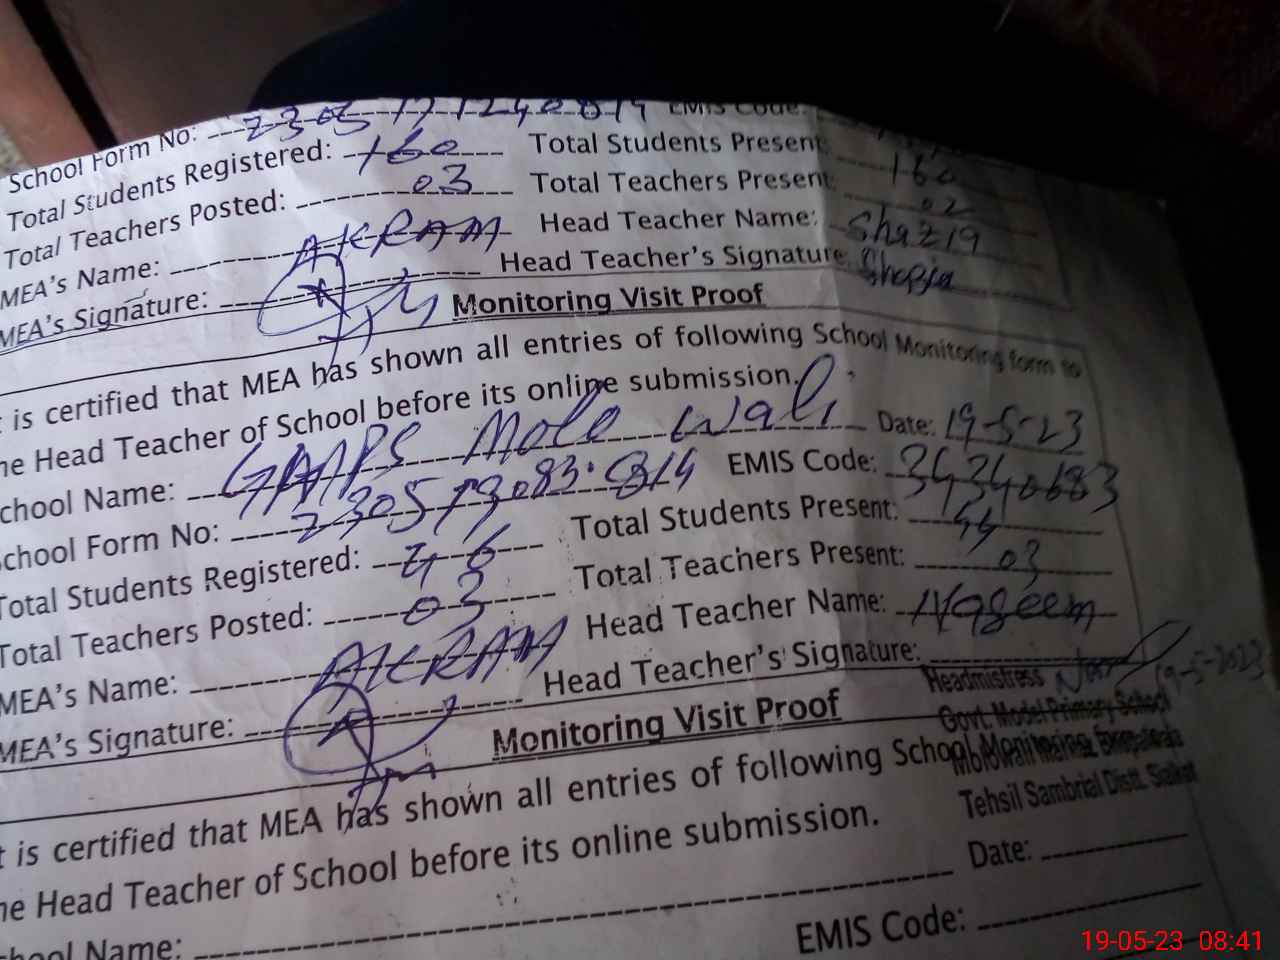 School Form No: 2305171240814 EMIS Code:
Total Students Registered: 160 Total Students Present: 160
Total Teachers Posted: 03 Total Teachers Present: 02
MEA's Name: AKRAM Head Teacher Name: Shazia
MEA's Signature: Head Teacher's Signature: Shazia
Monitoring Visit Proof
t is certified that MEA has shown all entries of following School Monitoring form to
he Head Teacher of School before its online submission.
chool Name: GMPS Mole Wali Date: 19-5-23
chool Form No: 2305193083814 EMIS Code: 34340683
Total Students Registered: 46 Total Students Present: 44
Total Teachers Posted: 03 Total Teachers Present: 03
MEA's Name: AKRAM Head Teacher Name: Nazeem
MEA's Signature: Head Teacher's Signature:
Headmistress 19-5-2023
Govt. Model Primary School
Tehsil Sambrial Distt. Sialkot
Monitoring Visit Proof
t is certified that MEA has shown all entries of following School Monitoring
he Head Teacher of School before its online submission.
Date:
chool Name:
EMIS Code:
19-05-23 08:41